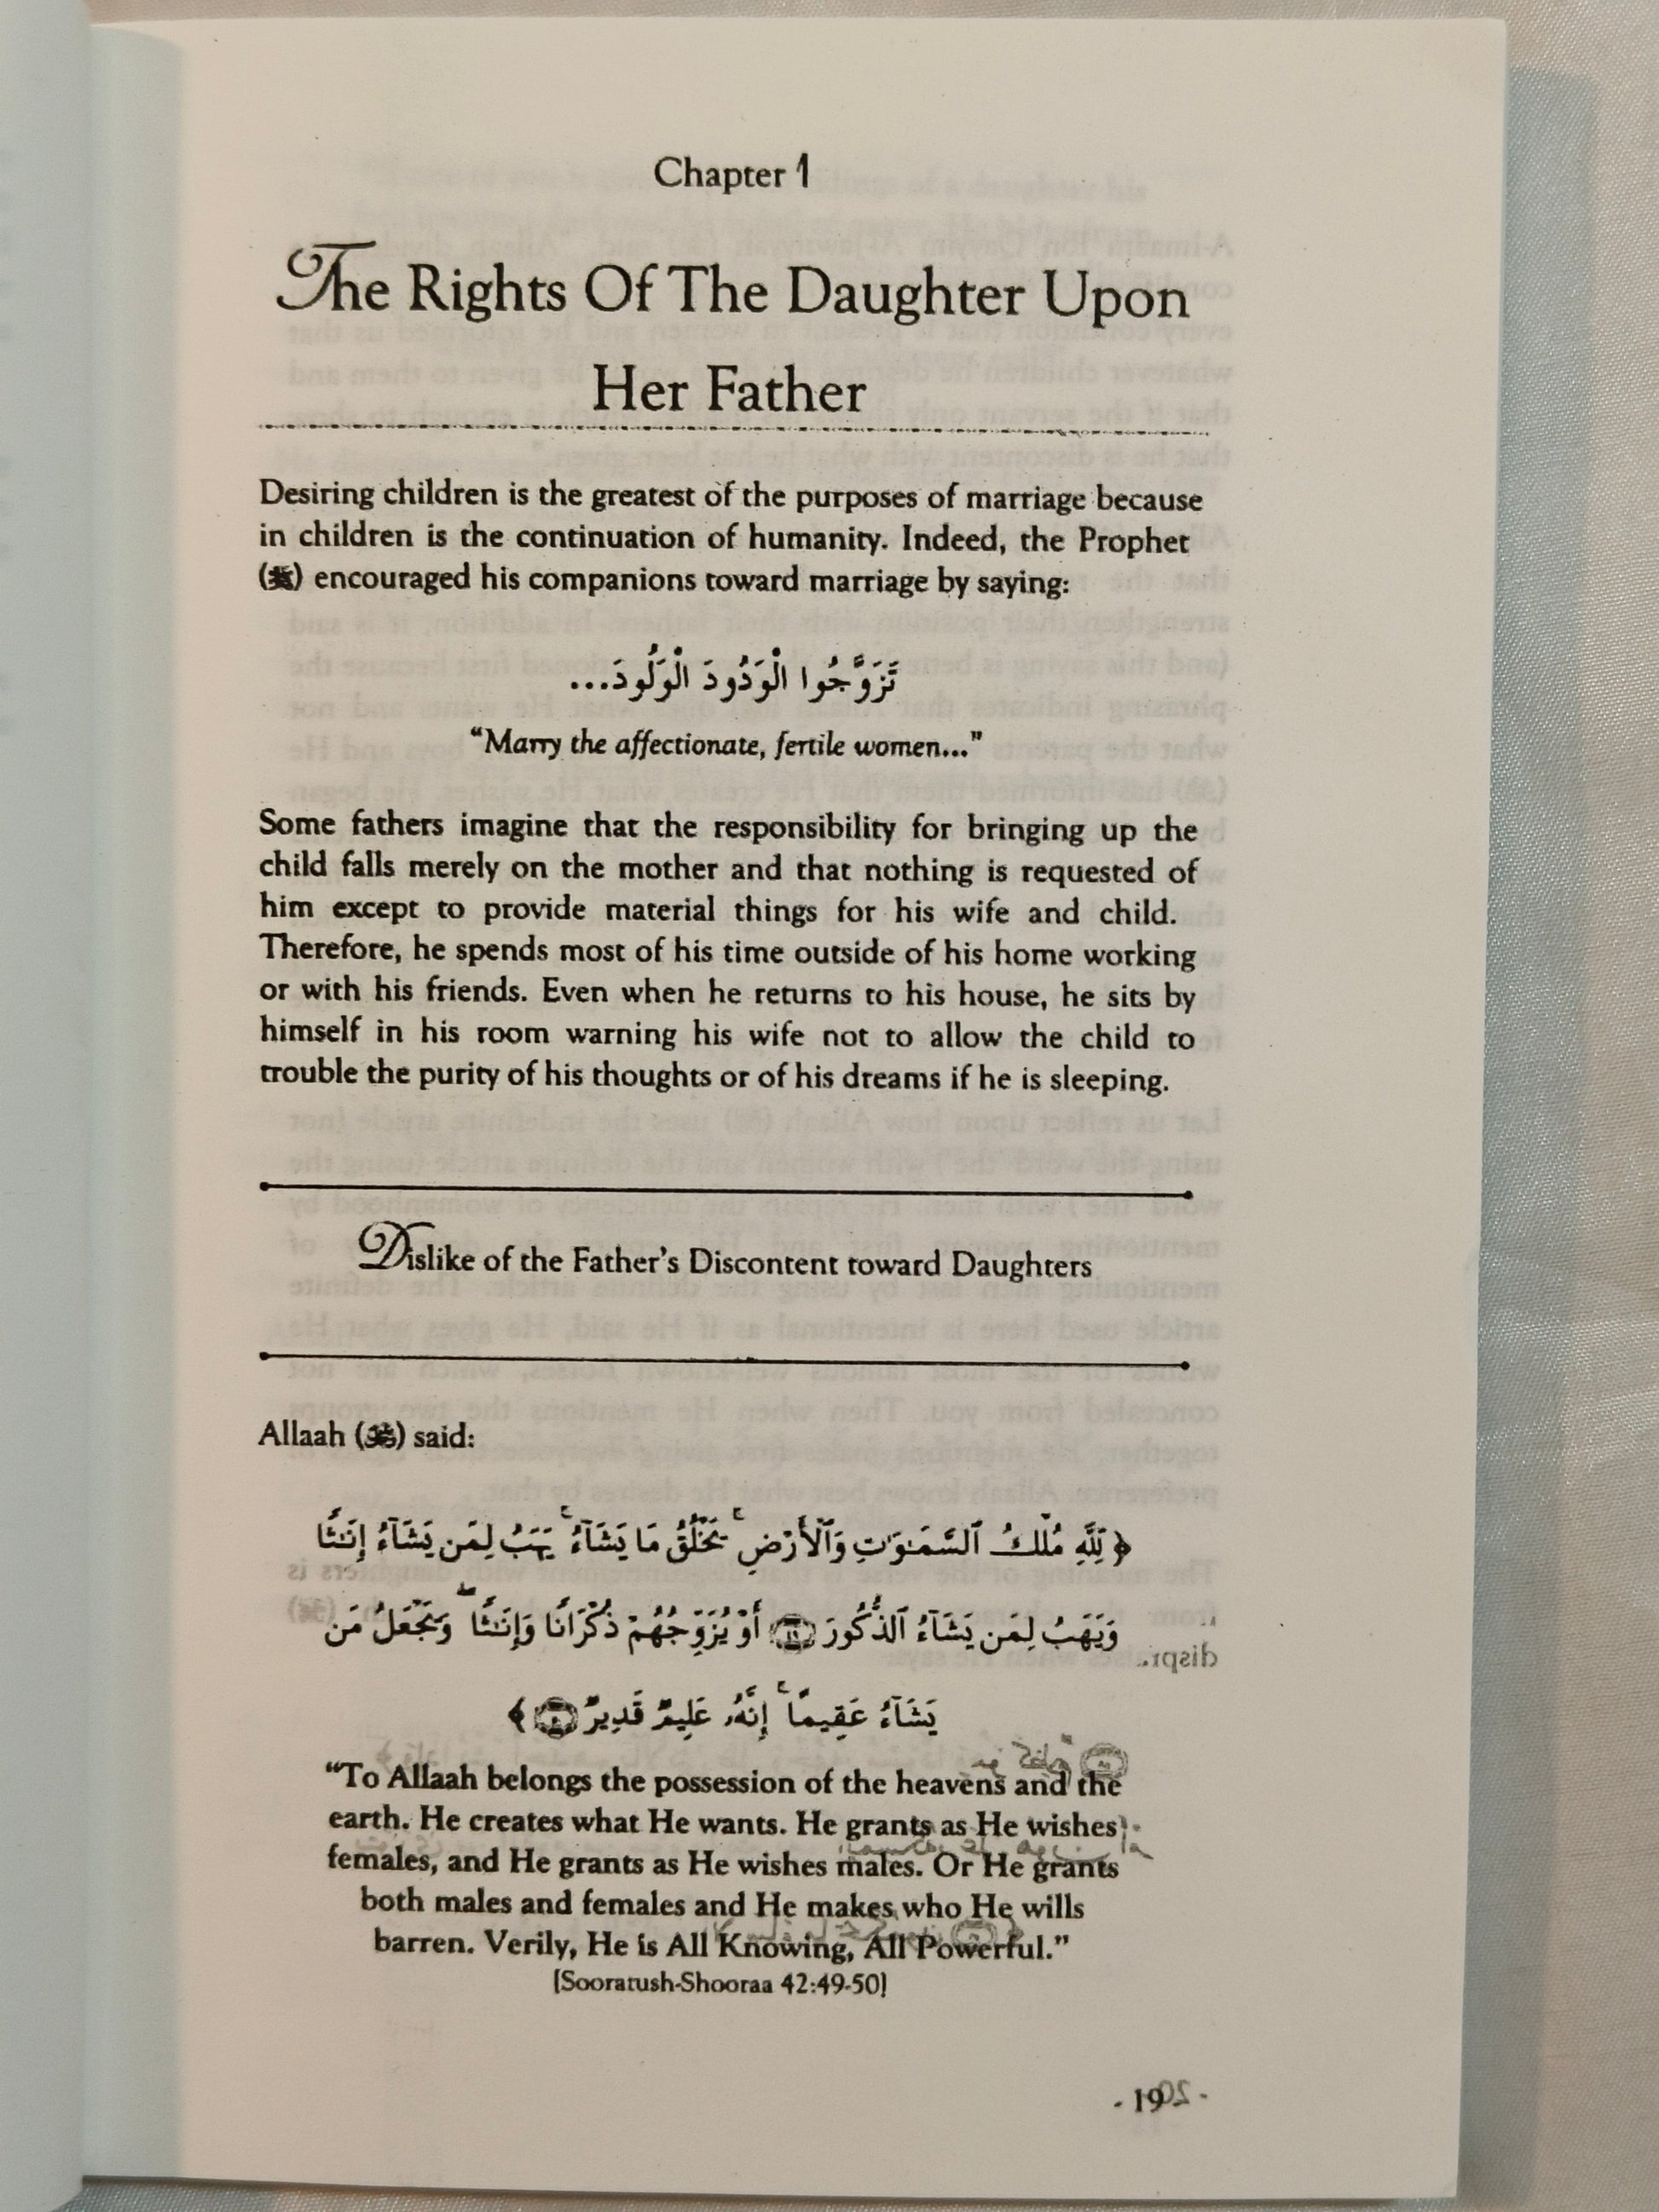 Chapter 1
The Rights Of The Daughter Upon
Her Father
Desiring children is the greatest of the purposes of marriage because
in children is the continuation of humanity. Indeed, the Prophet
(ﷺ) encouraged his companions toward marriage by saying:
تَزَوَّجُوا الْوَدُودَ الْوَلُودَ...
“Marry the affectionate, fertile women...”
Some fathers imagine that the responsibility for bringing up the
child falls merely on the mother and that nothing is requested of
him except to provide material things for his wife and child.
Therefore, he spends most of his time outside of his home working
or with his friends. Even when he returns to his house, he sits by
himself in his room warning his wife not to allow the child to
trouble the purity of his thoughts or of his dreams if he is sleeping.
Dislike of the Father’s Discontent toward Daughters
Allaah () said:
﴿ لِلَّهِ مُلْكُ ٱلسَّمَـٰوَٰتِ وَٱلْأَرْضِ ۚ يَخْلُقُ مَا يَشَآءُ ۚ يَهَبُ لِمَن يَشَآءُ إِنَـٰثًا
وَيَهَبُ لِمَن يَشَآءُ ٱلذُّكُورَ ۝ أَوْ يُزَوِّجُهُمْ ذُكْرَانًا وَإِنَـٰثًا ۖ وَيَجْعَلُ مَن
يَشَآءُ عَقِيمًا ۚ إِنَّهُۥ عَلِيمٌ قَدِيرٌ ۝ ﴾
“To Allaah belongs the possession of the heavens and the
earth. He creates what He wants. He grants as He wishes
females, and He grants as He wishes males. Or He grants
both males and females and He makes who He wills
barren. Verily, He is All Knowing, All Powerful.”
[Sooratush-Shooraa 42:49-50]
- 19